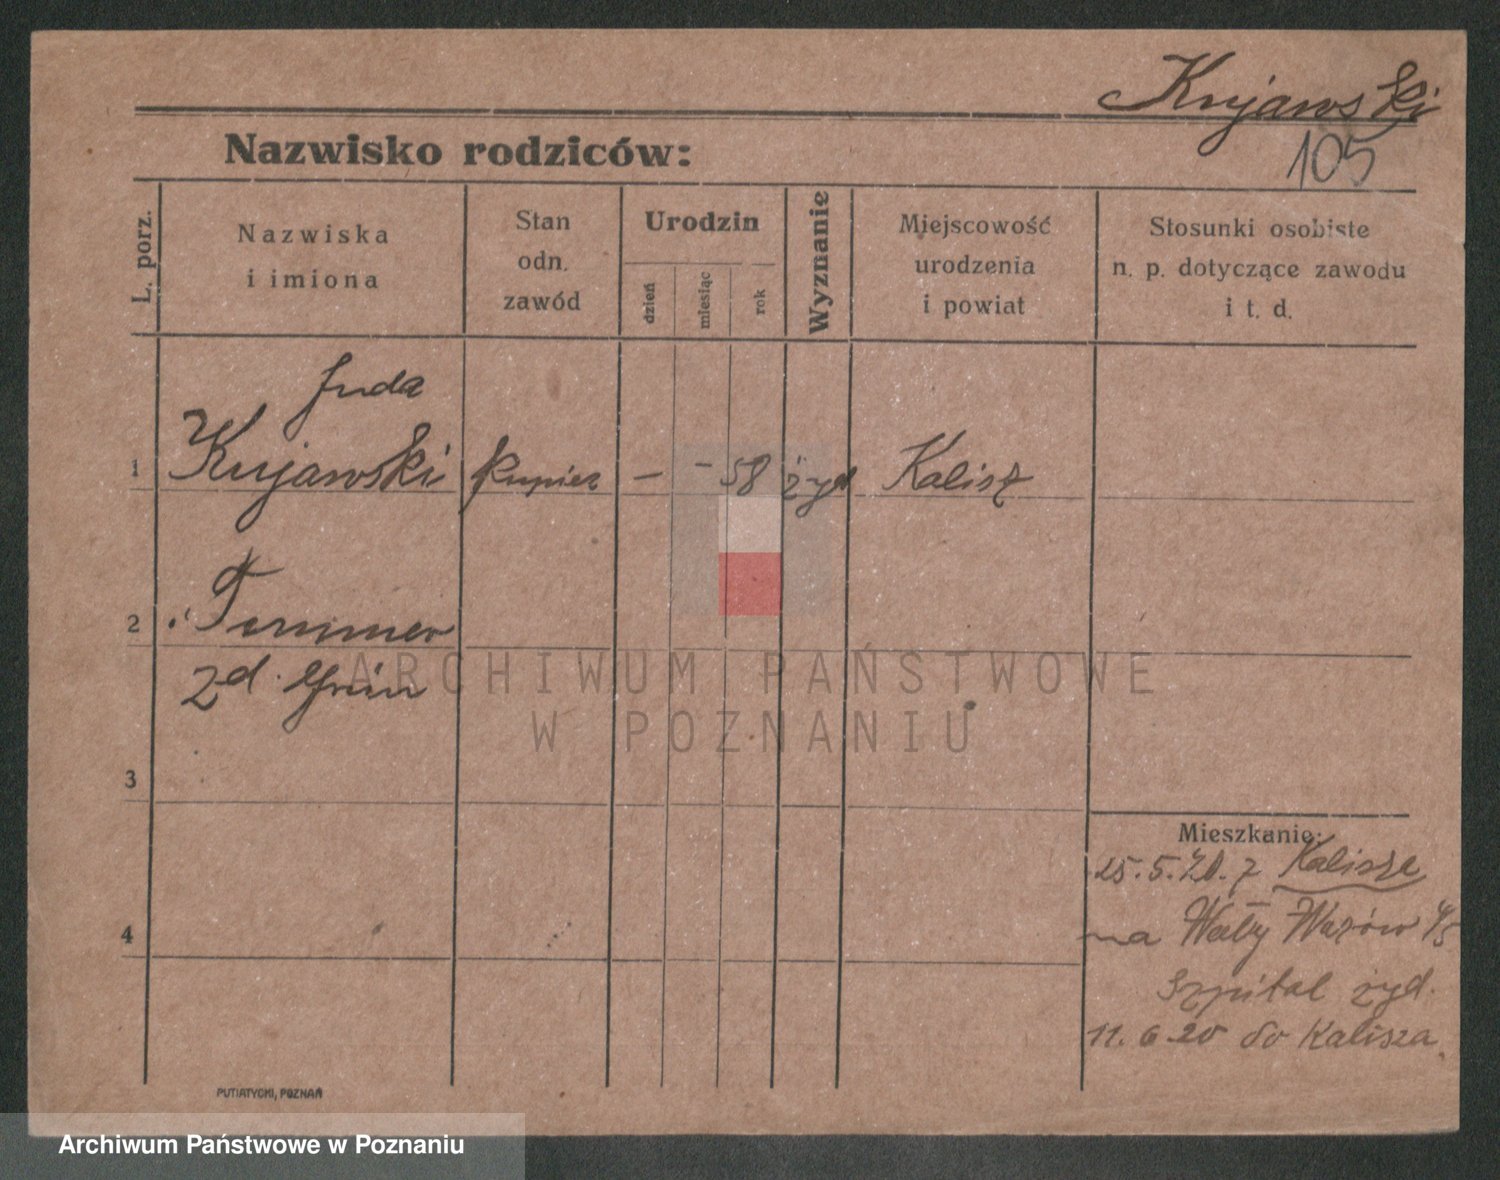 Kujawski
105
Nazwisko rodziców:
L. porz.
Nazwiska
i imiona
Stan
odn.
zawód
Urodzin
dzień
miesiąc
rok
Wyznanie
Miejscowość
urodzenia
i powiat
Stosunki osobiste
n. p. dotyczące zawodu
i t. d.
Juda
1 Kujawski kupiec — — 58 żyd Kalisz
2
zd. Grün
ARCHIWUM PAŃSTWOWE
W POZNANIU
3
Mieszkanie:
25.5.20. z Kalisza
4
na Wały Wazów 4/5
Szpital żyd.
11.6.20 do Kalisza.
PUTIATYCKI, POZNAŃ
Archiwum Państwowe w Poznaniu